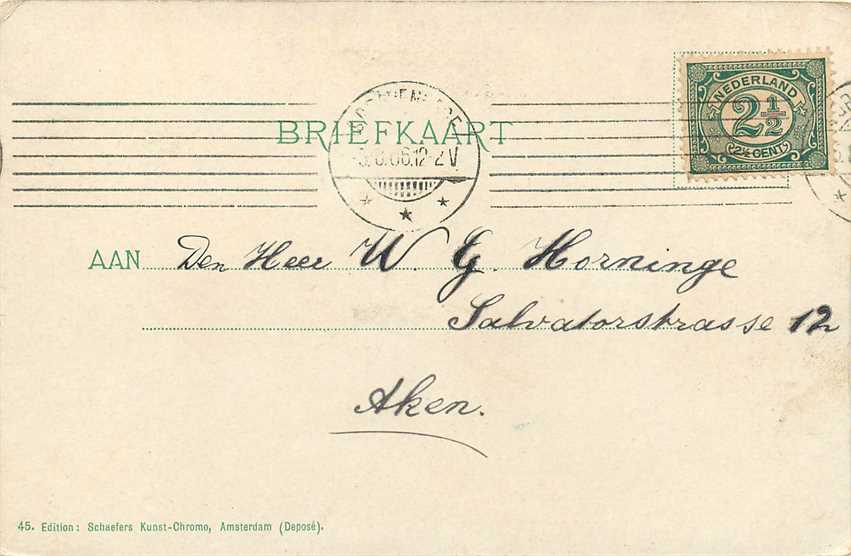 NEDERLAND
2½
2½ CENT
BRIEFKAART
12-2V
AAN Den Heer W. G. Horninge
Salvatorstrasse 12
Aken.
45. Edition: Schaefers Kunst-Chromo, Amsterdam (Deposé).